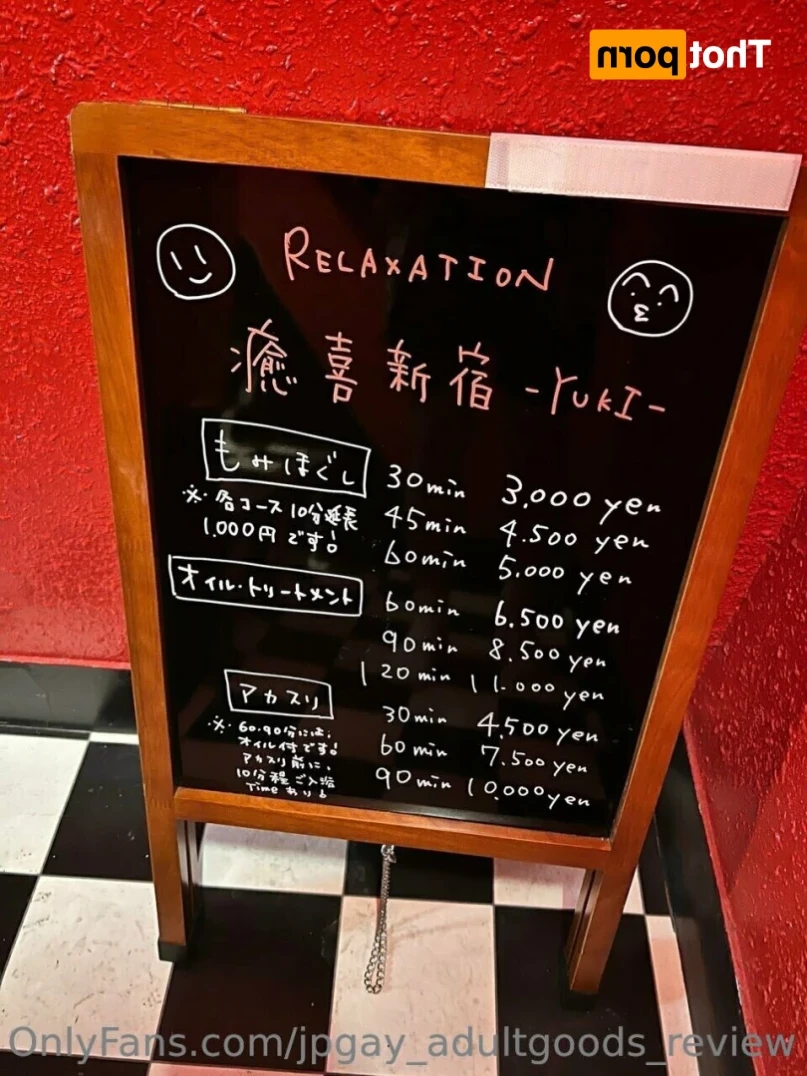 Thot porn
RELAXATION
癒喜新宿 -YUKI-
もみほぐし
30min 3,000 yen
※各コース10分延長
1,000円です!
45min 4,500 yen
60min 5,000 yen
オイル・トリートメント
60min 6,500 yen
90min 8,500 yen
120min 11,000 yen
アカスリ
30min 4,500 yen
※60・90分には、
オイル付です!
60min 7,500 yen
アカスリ前に、
10分程ご入浴
Timeあり!
90min 10,000 yen
OnlyFans.com/jpgay_adultgoods_review